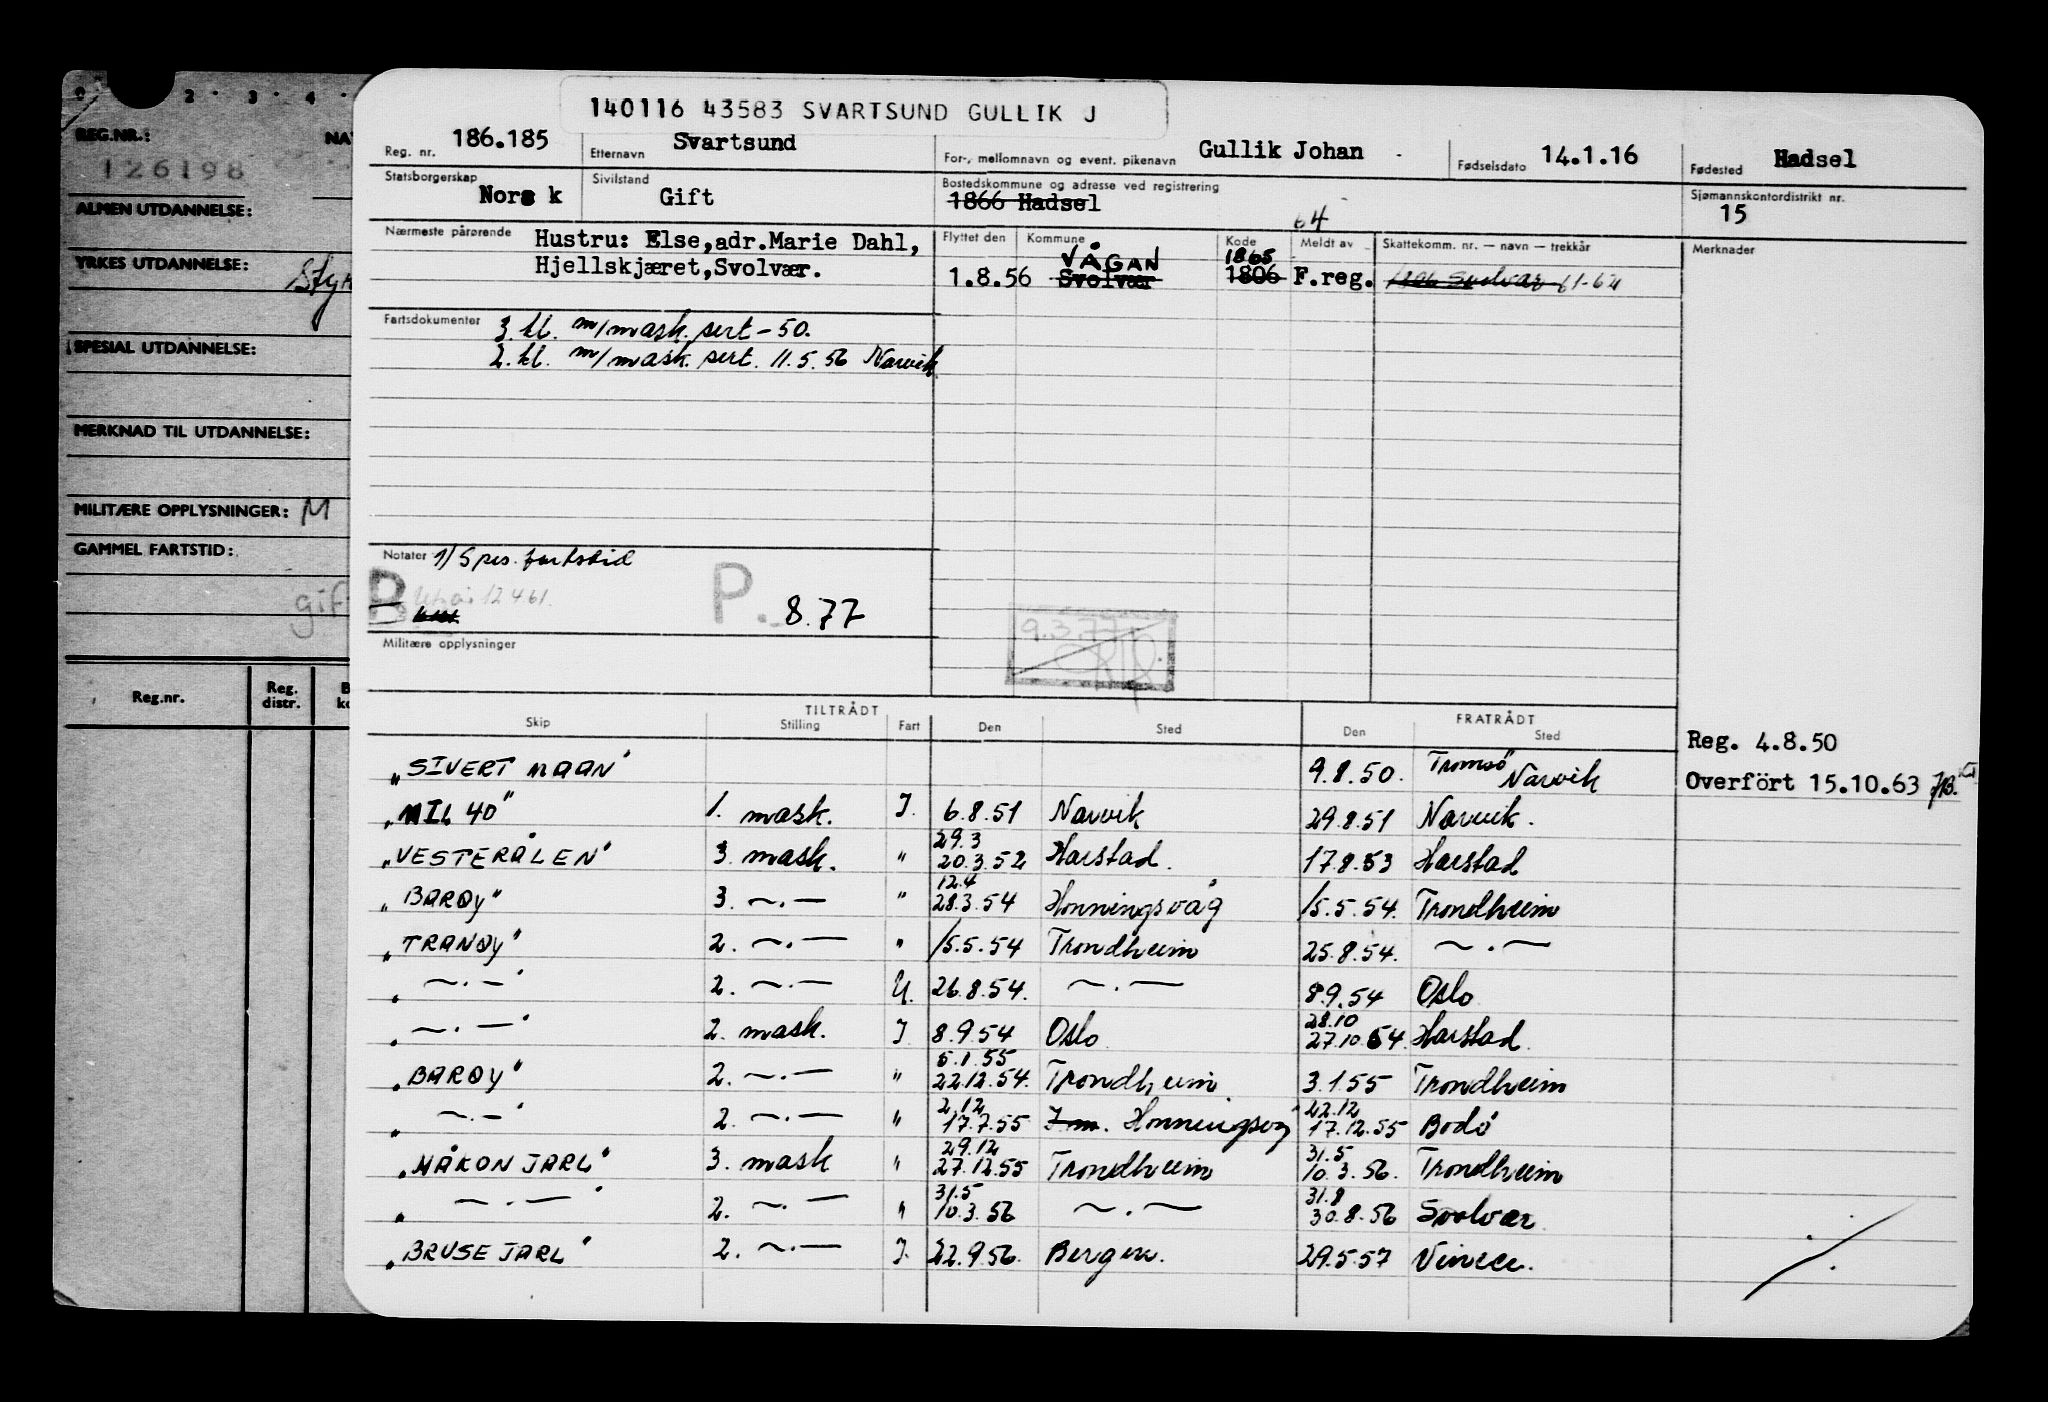 140116 43583 SVARTSUND GULLIK J
Reg. nr. 186.185 Etternavn Svartsund For-, mellomnavn og event. pikenavn Gullik Johan Fødselsdato 14.1.16 Fødested Hadsel
Statsborgerskap Norsk Sivilstand Gift Bostedskommune og adresse ved registrering 1866 Hadsel Sjømannskontordistrikt nr. 15
64
Nærmeste pårørende Hustru: Else,adr.Marie Dahl,
Hjellskjæret,Svolvær.
Flyttet den Kommune Kode Meldt av Skattekomm. nr. — navn — trekkår Merknader
VÅGAN 1865
1.8.56 Svolvær 1806 F.reg. 1806 Svolvær 61-64
Fartsdokumenter 3. kl. m/mask. sert - 50.
2. kl. m/mask. sert. 11.5.56 Narvik
Notater 1/ Spes. fartstid
P 12 4 61. P. 8.77
9.3.77
Militære opplysninger
TILTRÅDT FRATRÅDT
Skip Stilling Fart Den Sted Den Sted
Reg. 4.8.50
Overfört 15.10.63
"SIVERT MAAN" 9.8.50. Tromsö Narvik
"MIL 40" 1. mask. I. 6.8.51 Narvik 29.8.51 Narvik.
29.3
"VESTERÅLEN" 3. mask. " 20.3.52 Harstad. 17.8.53 Harstad
12.4
"BARØY" 3. -.- " 28.3.54 Honningsvåg 15.5.54. Trondheim
"TRANØY" 2. -.- " 15.5.54 Trondheim 25.8.54. -.-
" -.- " 2. -.- U. 26.8.54. -.- 8.9.54 Oslo
28.10
" -.- " 2. mask. I 8.9.54 Oslo 27.10.54. Harstad
5.1.55
"BARØY" 2. -.- " 22.12.54. Trondheim 3.1.55 Trondheim
2.12 22.12
" -.- " 2. -.- " 17.7.55 Honningsvåg 17.12.55 Bodö
29.12 31.5
"HÅKON JARL" 3. mask " 27.12.55 Trondheim 10.3.56. Trondheim
31.5 31.8
" -.- " 2. -.- " 10.3.56 -.- 30.8.56 Svolvær
"BRUSE JARL" 2. -.- I. 22.9.56. Bergen. 29.5.57
0 2 · 3 · 4 ·
REG.NR.: NA
126198
ALMEN UTDANNELSE:
YRKES UTDANNELSE:
SPESIAL UTDANNELSE:
MERKNAD TIL UTDANNELSE:
MILITÆRE OPPLYSNINGER: M
GAMMEL FARTSTID:
gif
Reg.nr. Reg. distr.